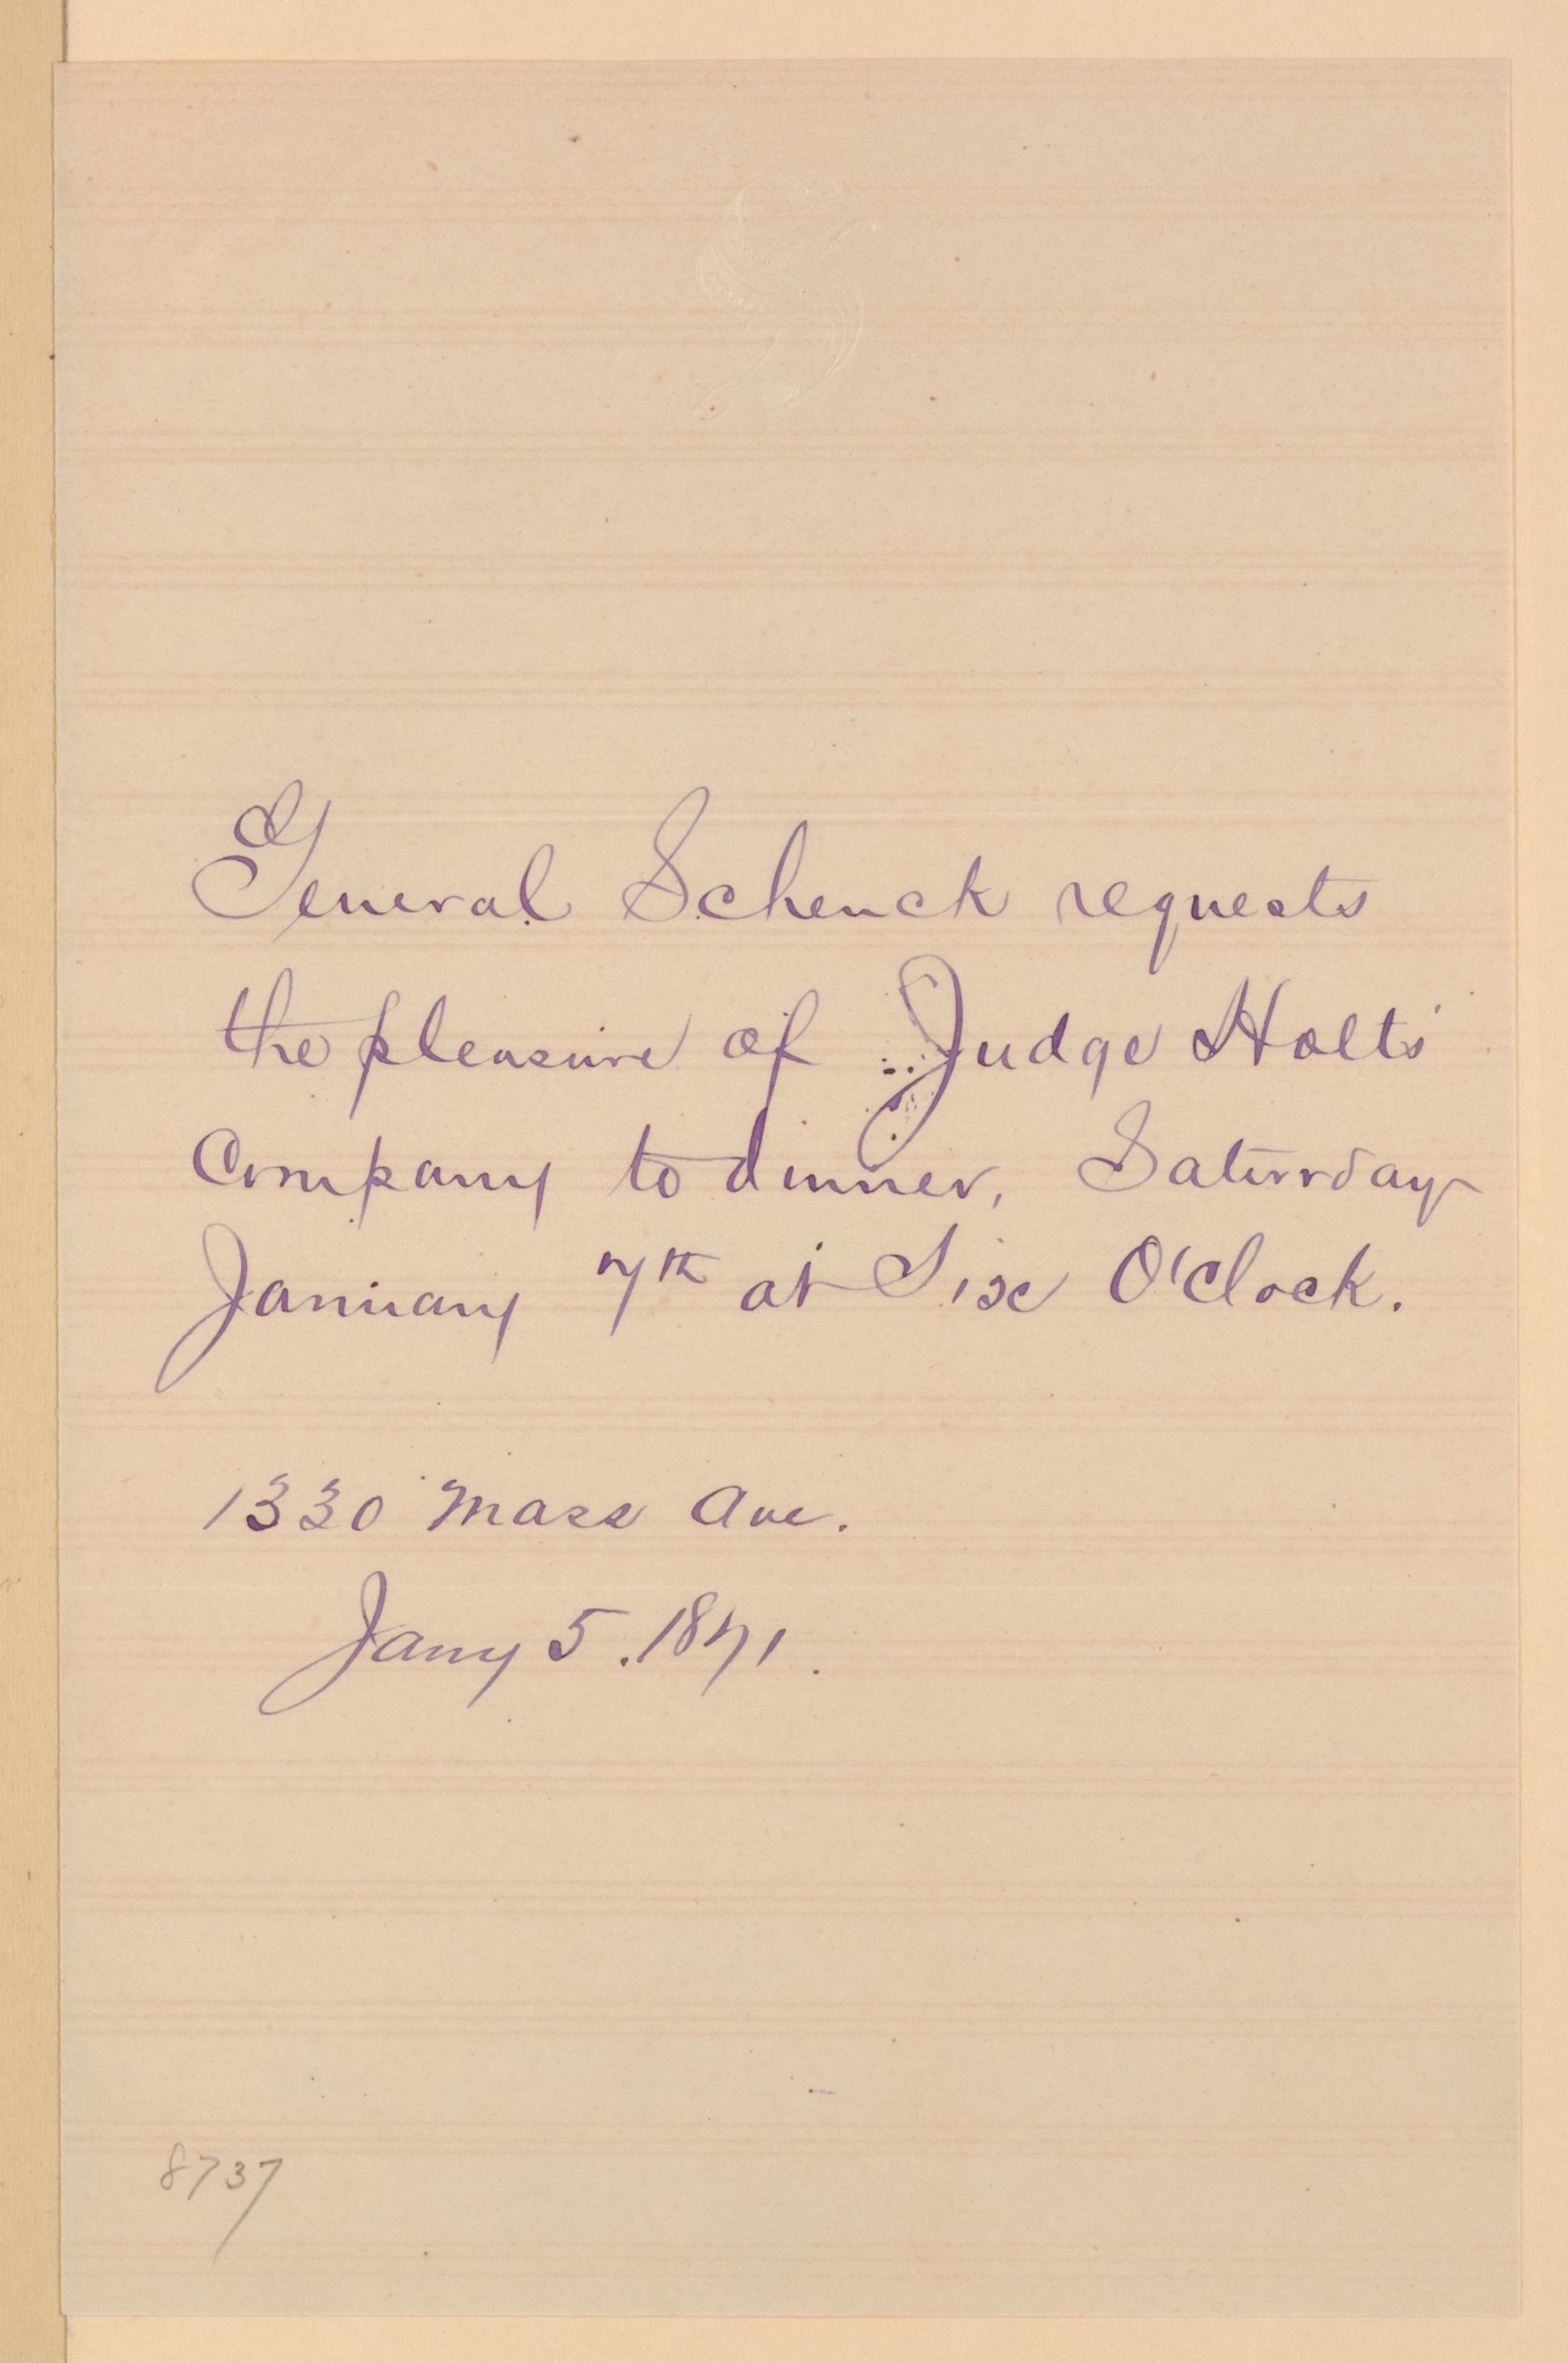 General Schenck requests
the pleasure of Judge Holt's
Company to dinner, Saturday
January 7th at Six O'Clock.
1330 Mass Ave.
Jany 5. 1871.
8737